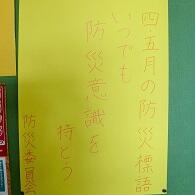 四・五月の防災標語
いつでも
防災意識を
持とう
防災委員会